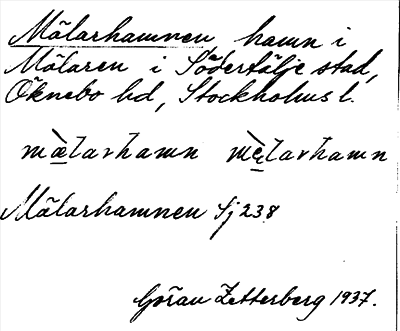 Mälarhamnen, hamn i
Mälaren i Södertälje stad,
Öknebo hd, Stockholms l.
mæ̀larhamn mɛ̀larhamn
Mälarhamnen Sj 238
Göran Zetterberg 1937.